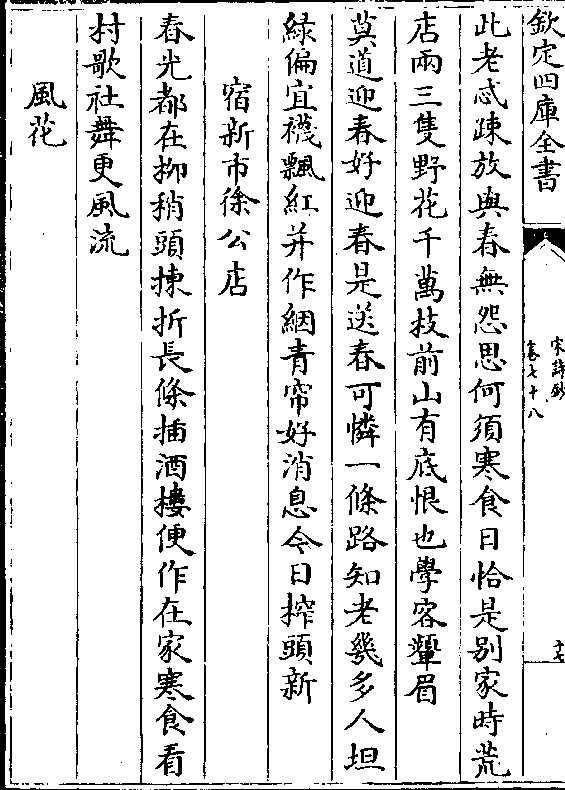 欽定四庫全書
宋詩鈔
卷七十八
十七
此老忒踈放與春無怨思何須寒食日恰是别家時荒
店兩三隻野花千萬枝前山有底恨也學客顰眉
莫道迎春好迎春是送春可憐一條路知老幾多人坦
緑偏宜襪飄紅并作絪青帘好消息今日搾頭新
宿新市徐公店
春光都在栁稍頭揀折長條插酒樓便作在家寒食看
村歌社舞更風流
風花